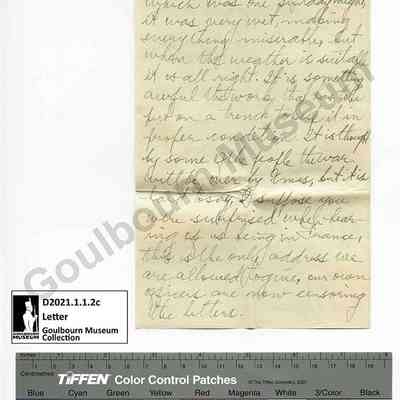 which was one Sunday night,
it was very wet, making
everything miserable, but
when the weather is suitable
it is all right. It is something
awful the work that
put on a trench to keep it in
proper condition. It is thought
by some the war
will be over by Xmas, but it is
to say, I suppose you
were surprised when hear-
ing of us being in France,
this is the only address we
are allowed to give, our own
officers are now censoring
the letters.
Goulbourn Museum
D2021.1.1.2c
Letter
Goulbourn Museum
Collection
GOULBOURN
MUSEUM
Inches
Centimetres
TIFFEN Color Control Patches
© The Tiffen Company, 2007
Blue Cyan Green Yellow Red Magenta White 3/Color Black